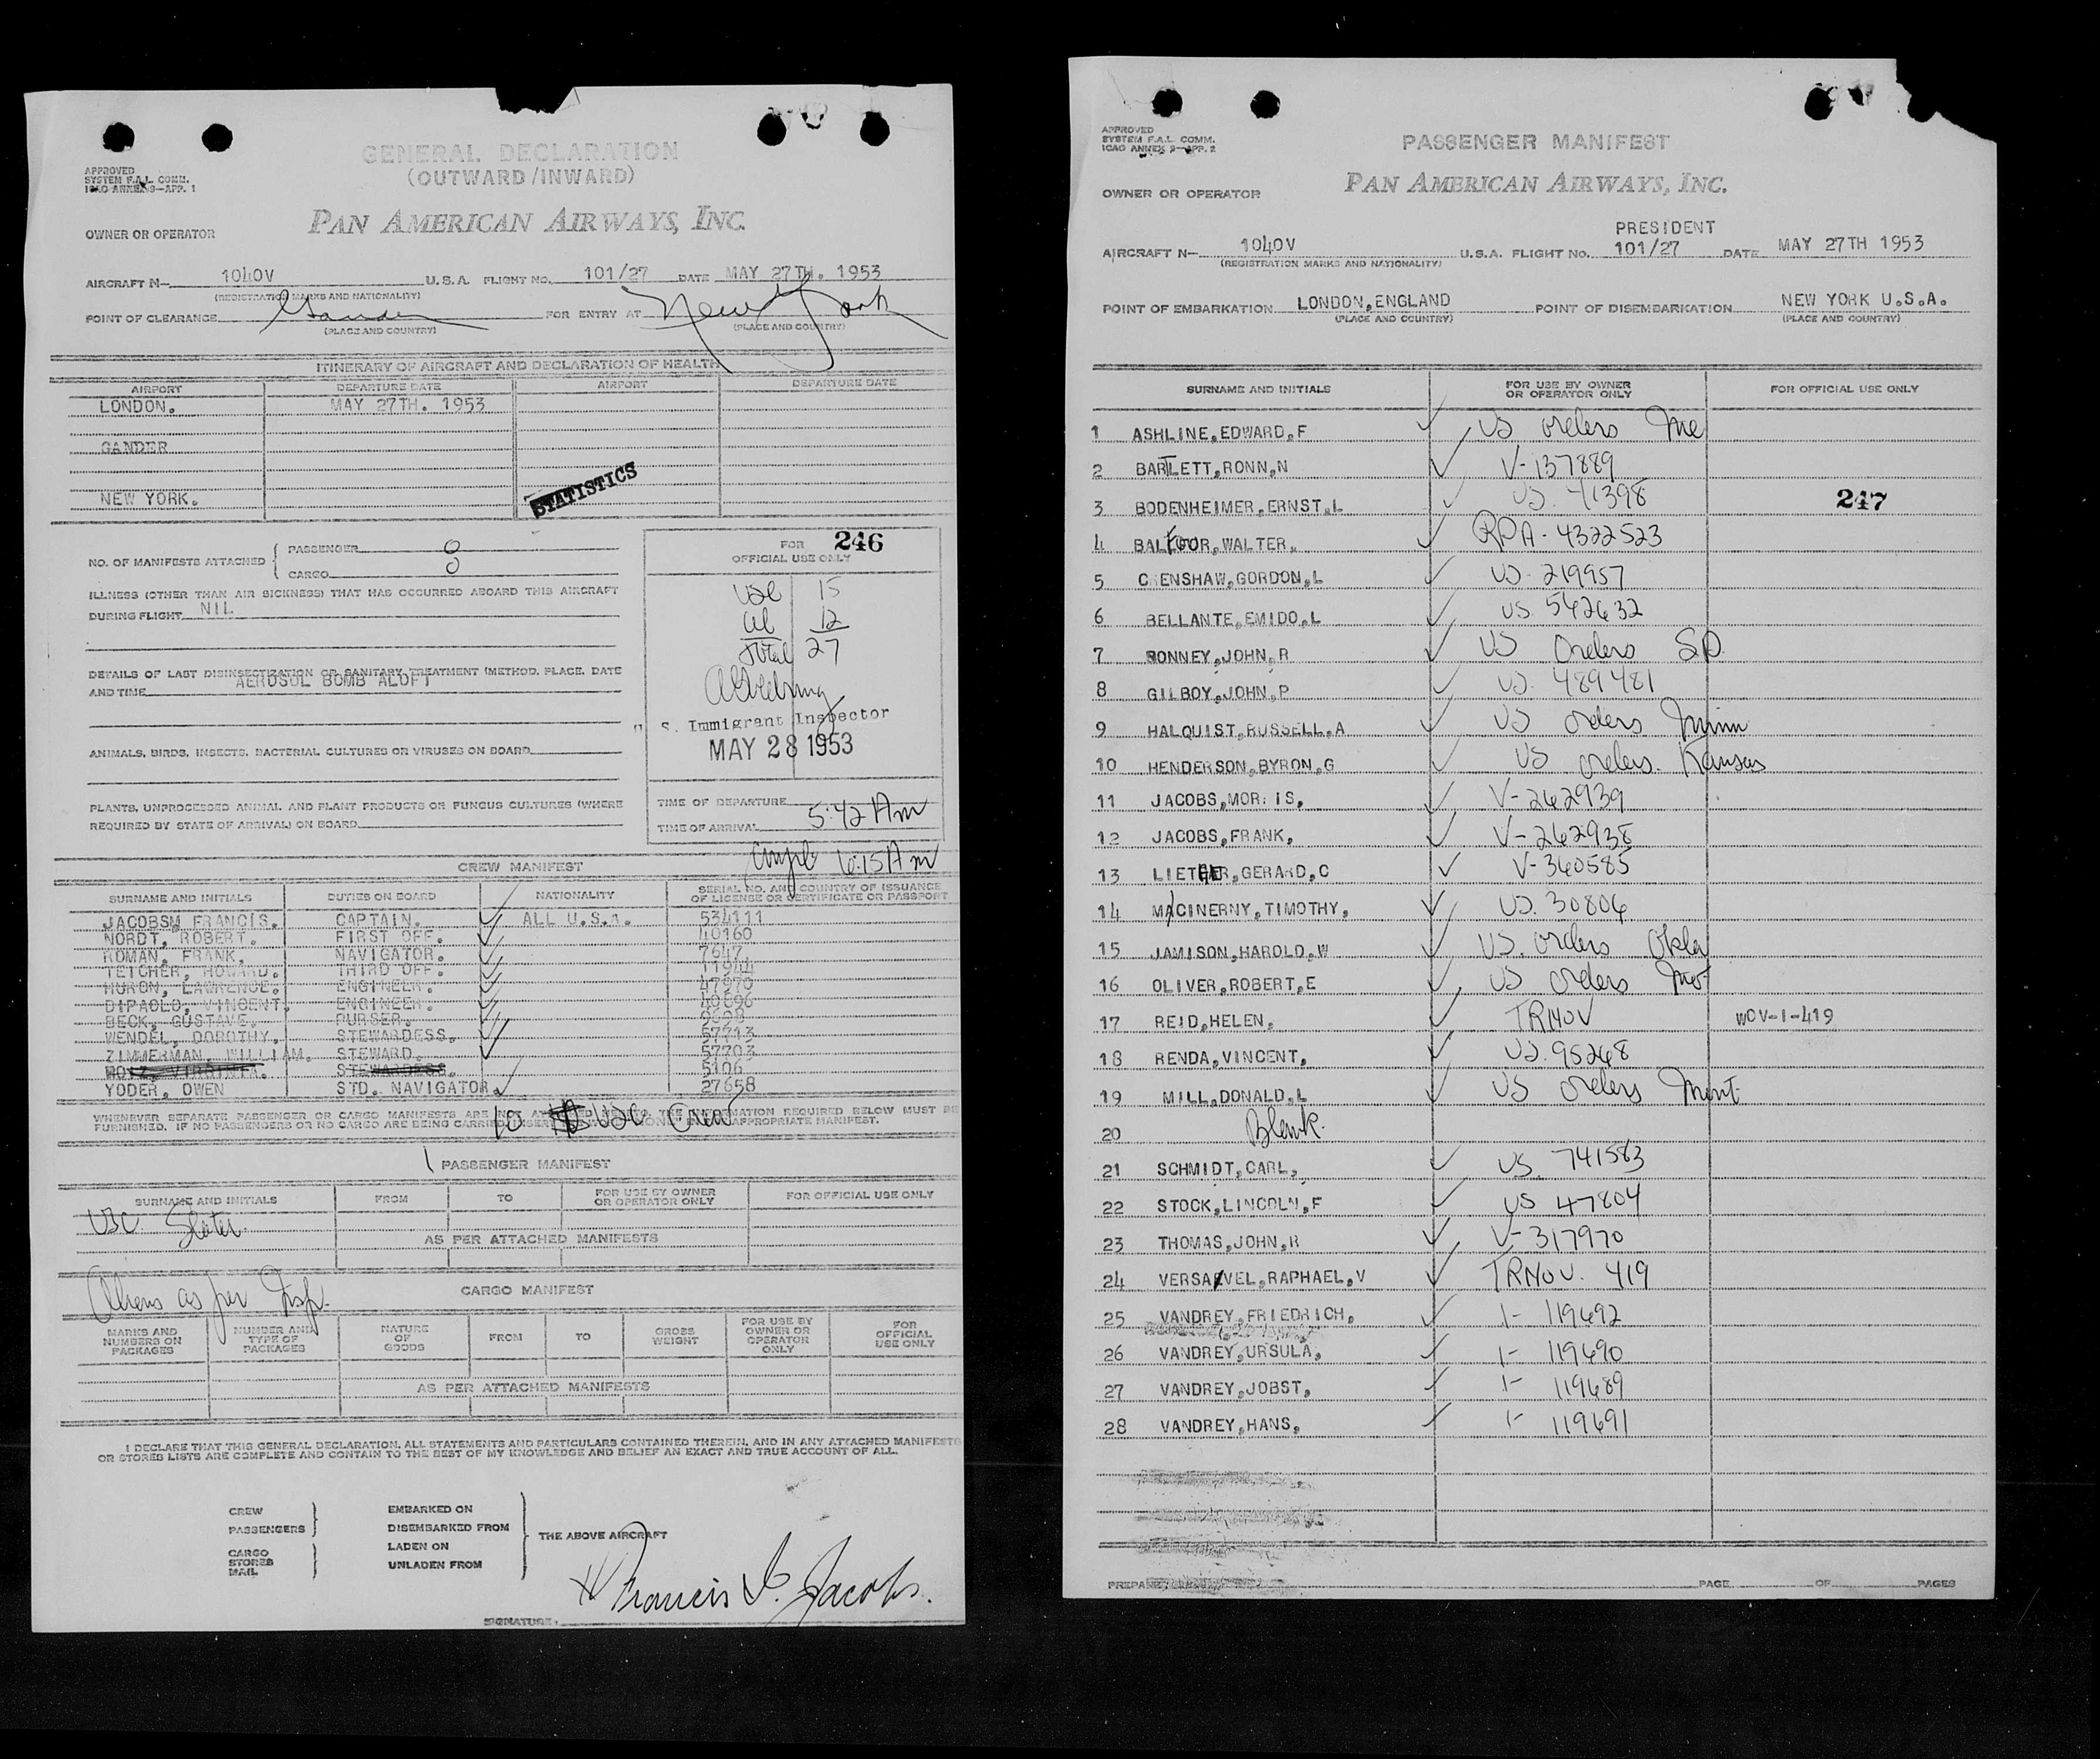 GENERAL DECLARATION
(OUTWARD/INWARD)
APPROVED
SYSTEM F.A.L. COMM.
ICAO ANNEX 9—APP. 1
OWNER OR OPERATOR
PAN AMERICAN AIRWAYS, INC.
AIRCRAFT N— 1040V U.S.A. FLIGHT NO. 101/27 DATE MAY 27TH. 1953
(REGISTRATION MARKS AND NATIONALITY)
POINT OF CLEARANCE Gander FOR ENTRY AT New York
(PLACE AND COUNTRY) (PLACE AND COUNTRY)
ITINERARY OF AIRCRAFT AND DECLARATION OF HEALTH
AIRPORT DEPARTURE DATE AIRPORT DEPARTURE DATE
LONDON. MAY 27TH. 1953
GANDER
NEW YORK.
STATISTICS
NO. OF MANIFESTS ATTACHED { PASSENGER 0
CARGO 0
ILLNESS (OTHER THAN AIR SICKNESS) THAT HAS OCCURRED ABOARD THIS AIRCRAFT
DURING FLIGHT NIL
DETAILS OF LAST DISINSECTIZATION OR SANITARY TREATMENT (METHOD, PLACE, DATE
AND TIME AEROSOL BOMB ALOFT
ANIMALS, BIRDS, INSECTS, BACTERIAL CULTURES OR VIRUSES ON BOARD
PLANTS, UNPROCESSED ANIMAL AND PLANT PRODUCTS OR FUNGUS CULTURES (WHERE
REQUIRED BY STATE OF ARRIVAL) ON BOARD
FOR 246
OFFICIAL USE ONLY
USC 15
Al 12
Total 27
U. S. Immigrant Inspector
MAY 28 1953
TIME OF DEPARTURE
TIME OF ARRIVAL 5:42 AM
Compl. 6:15 AM
CREW MANIFEST
SURNAME AND INITIALS DUTIES ON BOARD NATIONALITY SERIAL NO. AND COUNTRY OF ISSUANCE
OF LICENSE OR CERTIFICATE OR PASSPORT
JACOBSM FRANCIS. CAPTAIN. ALL U.S.A. 534111
NORDT, ROBERT. FIRST OFF. 40160
ROMAN, FRANK, NAVIGATOR. 7647
TEICHER, HOWARD. THIRD OFF. 11944
HURON, LAWRENCE. ENGINEER. 47970
DIPAOLO, VINCENT. ENGINEER. 40696
BECK, GUSTAVE. PURSER.
WENDEL, DOROTHY. STEWARDESS. 57713
ZIMMERMAN, WILLIAM. STEWARD. 57703
VIRGINIA. STEWARDESS. 5106
YODER, OWEN STD. NAVIGATOR 27658
WHENEVER SEPARATE PASSENGER OR CARGO MANIFESTS ARE NOT ATTACHED HERETO, THE INFORMATION REQUIRED BELOW MUST BE
FURNISHED. IF NO PASSENGERS OR NO CARGO ARE BEING CARRIED INSERT THE WORD "NONE" IN THE APPROPRIATE MANIFEST.
10 USC Crew
PASSENGER MANIFEST
SURNAME AND INITIALS FROM TO FOR USE BY OWNER
OR OPERATOR ONLY FOR OFFICIAL USE ONLY
USC Slater
AS PER ATTACHED MANIFESTS
Aliens as per Insp.
CARGO MANIFEST
MARKS AND
NUMBERS ON
PACKAGES NUMBER AND
TYPE OF
PACKAGES NATURE
OF
GOODS FROM TO GROSS
WEIGHT FOR USE BY
OWNER OR
OPERATOR
ONLY FOR
OFFICIAL
USE ONLY
AS PER ATTACHED MANIFESTS
I DECLARE THAT THIS GENERAL DECLARATION, ALL STATEMENTS AND PARTICULARS CONTAINED THEREIN, AND IN ANY ATTACHED MANIFESTS
OR STORES LISTS ARE COMPLETE AND CONTAIN TO THE BEST OF MY KNOWLEDGE AND BELIEF AN EXACT AND TRUE ACCOUNT OF ALL.
CREW
PASSENGERS
CARGO
STORES
MAIL
EMBARKED ON
DISEMBARKED FROM
LADEN ON
UNLADEN FROM
THE ABOVE AIRCRAFT
SIGNATURE. X Francis J. Jacobs.
APPROVED
SYSTEM F.A.L. COMM.
ICAO ANNEX 9—APP. 2
PASSENGER MANIFEST
OWNER OR OPERATOR PAN AMERICAN AIRWAYS, INC.
PRESIDENT
AIRCRAFT N— 1040V U.S.A. FLIGHT NO. 101/27 DATE MAY 27TH 1953
(REGISTRATION MARKS AND NATIONALITY)
POINT OF EMBARKATION LONDON,ENGLAND POINT OF DISEMBARKATION NEW YORK U.S.A.
(PLACE AND COUNTRY) (PLACE AND COUNTRY)
SURNAME AND INITIALS FOR USE BY OWNER
OR OPERATOR ONLY FOR OFFICIAL USE ONLY
1 ASHLINE,EDWARD,F US orders Me
2 BARTLETT,RONN,N V-137889
3 BODENHEIMER,ERNST,L US. 71398 247
4 BALFOUR,WALTER, RPA-4322523
5 CRENSHAW,GORDON,L US-219957
6 BELLANTE,EMIDO,L US. 542632
7 BONNEY,JOHN,R US Orders SD.
8 GILBOY,JOHN,P US. 489481
9 HALQUIST,RUSSELL,A US orders Minn
10 HENDERSON,BYRON,G US orders. Kansas
11 JACOBS,MORRIS, V-262939
12 JACOBS,FRANK, V-262938
13 GERARD,C V-360585
14 MACINERNY,TIMOTHY, US. 30806
15 JAMISON,HAROLD,W US. orders Okla
16 OLIVER,ROBERT,E US orders Mo
17 REID,HELEN, TRNOV WOV-1-419
18 RENDA,VINCENT, US. 95268
19 MILL,DONALD,L US orders Mont
20 Blank.
21 SCHMIDT,CARL, US. 741583
22 STOCK,LINCOLN,F US 47804
23 THOMAS,JOHN,R V-317970
24 VERSAVEL,RAPHAEL,V TRNOV. 419
25 VANDREY,FRIEDRICH, I- 119692
26 VANDREY,URSULA, I- 119690
27 VANDREY,JOBST, I- 119689
28 VANDREY,HANS, I- 119691
PAGE OF PAGES